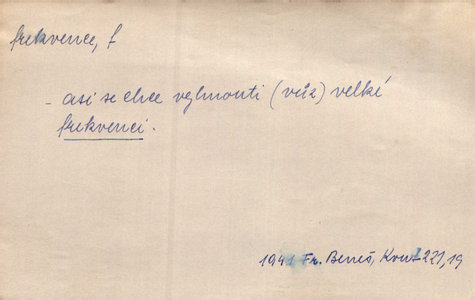 frekvence, f
- asi se chce vyhnouti (vůz) velké
frekvenci.
1941 Fr. Beneš, 221,19